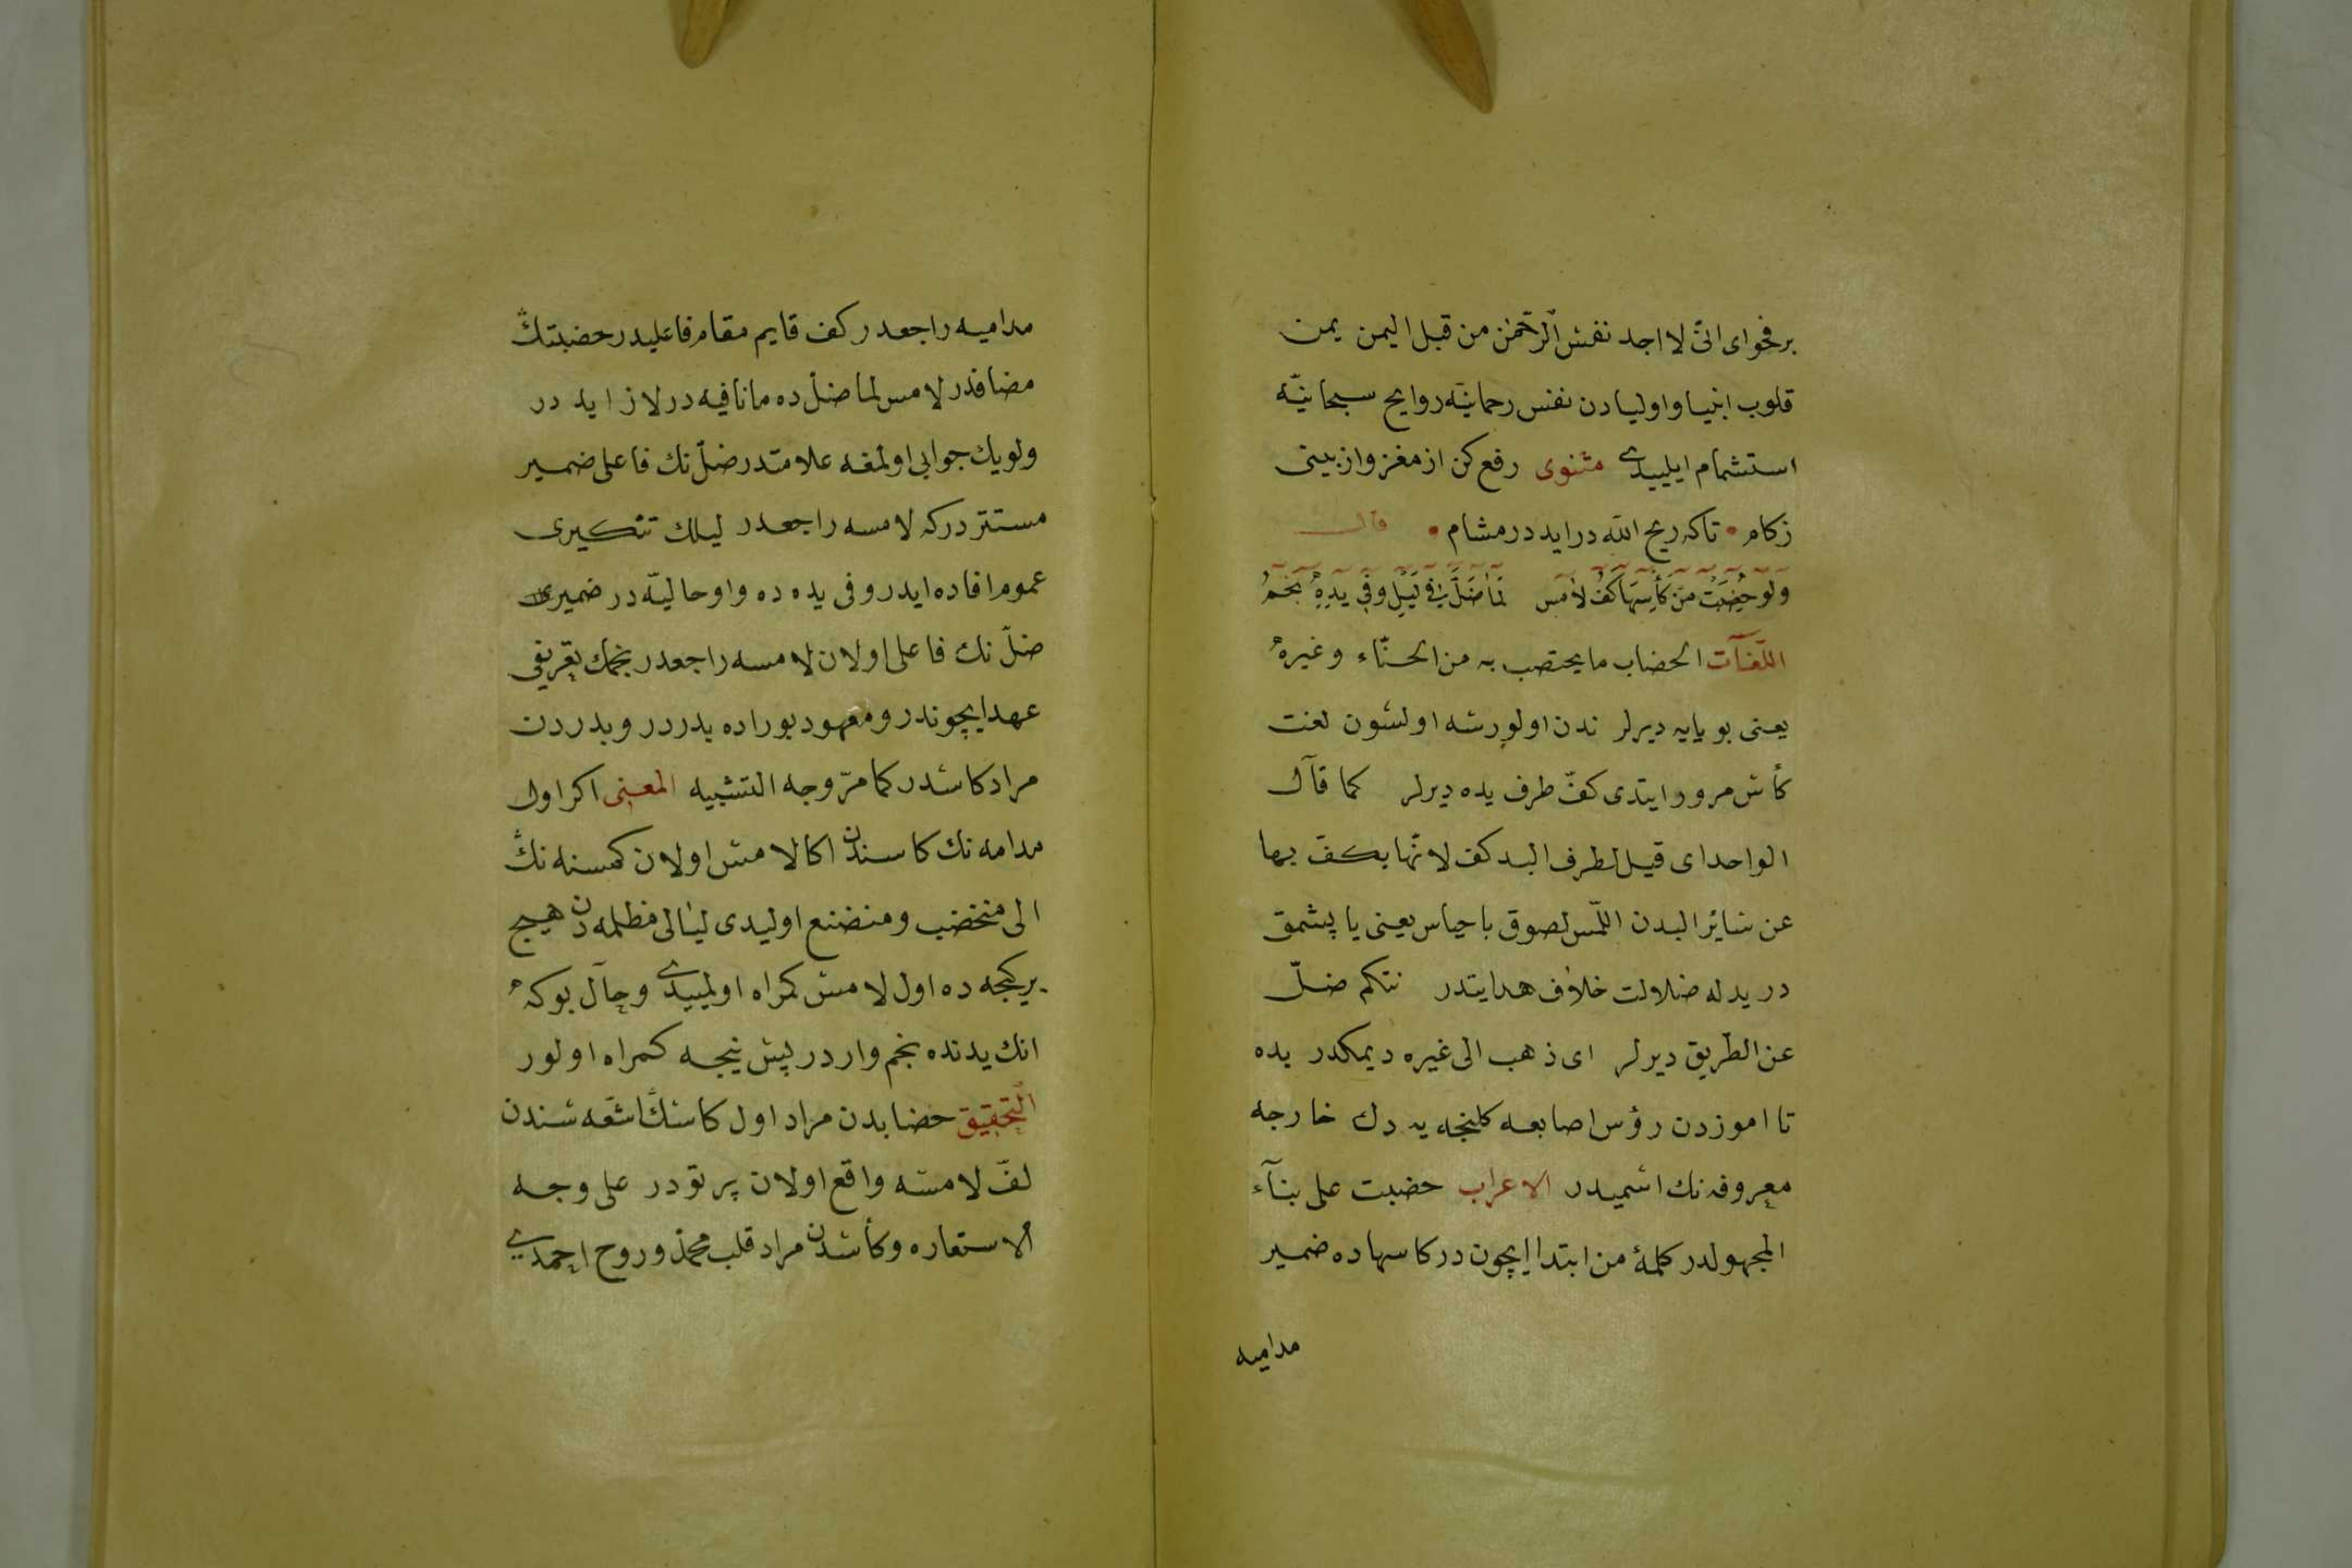 برفحوای انّی لا اجد نفس الرّحمٰن من قبل الیمن یمن
قلوب انبیا و اولیادن نفس رحمانیّه روایح سبحانیّه
استشمام ایلییدی مثنوی رفع کن از مغز و از بینی
زکام • تا که ریح اللّه در اید در مشام • قال
ولو خُضِبَتْ من کأسِهَا کفُّ لامسٍ لَمَا ضَلَّ فی لَیْلٍ وفی یدِهِ نجمُ
اللّغات الخضاب ما یختضب به من الحنّاء وغیره
یعنی بویایه دیرلر ندن اولورسه اولسون لغت
کأس مرور ایتدی کفّ طرف یده دیرلر کما قال
الواحدای قیل لطرف الید کف لانّها یکفّ بها
عن سائر البدن اللّمس لصوق باحساس یعنی یاپشمق
در یدله ضلالت خلاف هدایتدر نتکم ضلّ
عن الطّریق دیرلر ای ذهب الی غیره دیمکدر یده
تا اموزدن رؤس اصابعه کلنجه یه دك خارجه
معروفه نك اسمیدر الاعراب خضبت علی بنآء
المجهولدر کلمهٔ من ابتدا ایچون در کاسهاده ضمیر
مدامیه
مدامیه راجعدر کف قایم مقام فاعلیدر خضبتك
مضافدر لامس لما ضلّ ده ما نافیه در لا زاید در
ولویك جوابی اولمغه علامتدر ضلّ نك فاعلی ضمیر
مستتر درکه لامسه راجعدر لیلك تنکیری
عموم افاده ایدر وفی یده ده واو حالیّه در ضمیری
ضلّ نك فاعلی اولان لامسه راجعدر نجمك تعریفی
عهد ایچوندر ومعهود بوراده بدردر وبدردن
مراد کاسدر کما مرّ وجه التشبیه المعنی اکر اول
مدامه نك کاسندن اکا لامس اولان کمسنه نك
الی منخضب ومنضنع اولیدی لیالی مظلمه دن هیچ
بر کیجه ده اول لامس کمراه اولمییدی وحال بوکه
انك یدنده نجم واردر پس نیجه کمراه اولور
التّحقیق خضابدن مراد اول کاسك اشعّه سندن
لفّ لامسه واقع اولان پرتودر علی وجه
الاستعاره وکأسدن مراد قلب محمّدی وروح احمدی